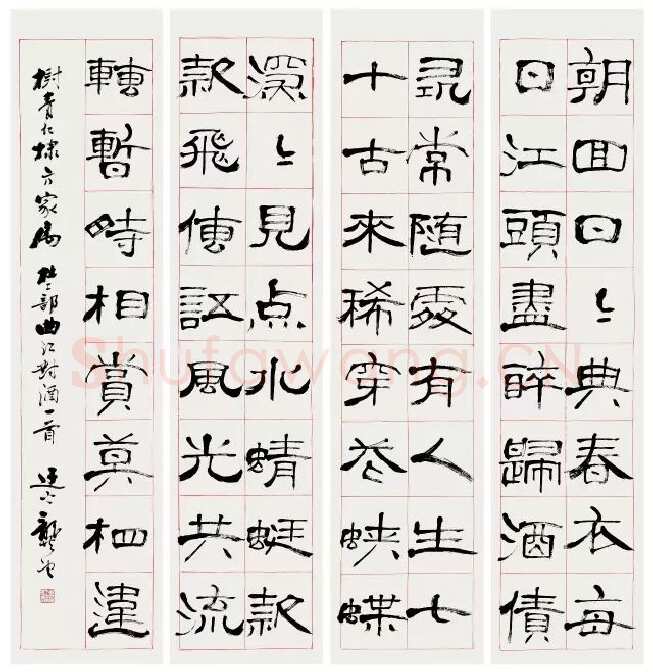 朝回日〻典春衣每
日江頭盡醉歸酒債
尋常随處有人生七
十古來稀穿花蛺蝶
深〻見点水蜻蜓款
款飛傳語風光共流
轉暫時相賞莫相違
樹青仁棣方家屬 杜工部曲江對酒一首
Shufawang.CN